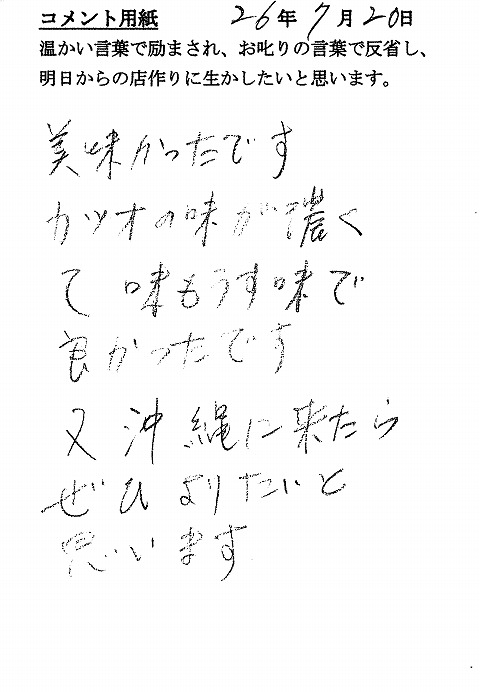 コメント用紙 26年7月20日
温かい言葉で励まされ、お叱りの言葉で反省し、
明日からの店作りに生かしたいと思います。
美味かったです
カツオの味が濃く
て 味もうす味で
良かったです
又 沖縄に来たら
ぜひ よりたいと
思います